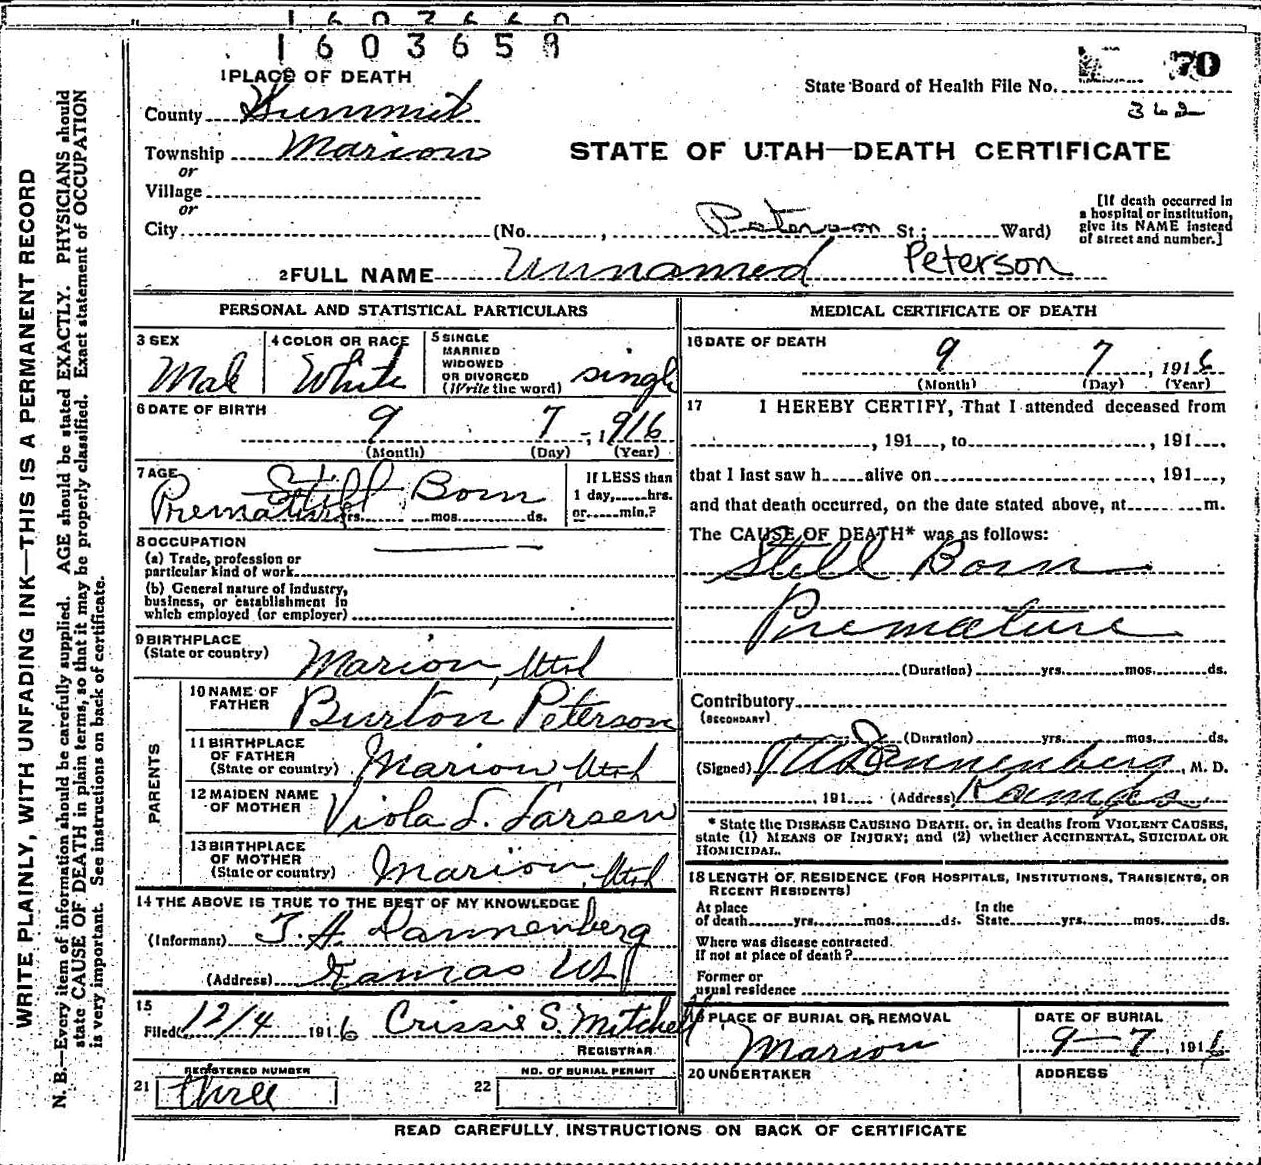 1603659
70
State Board of Health File No.
362
1 PLACE OF DEATH
County Summit
Township Marion
or
Village
or
City (No. , Peterson St.; Ward)
STATE OF UTAH—DEATH CERTIFICATE
[If death occurred in
a hospital or institution,
give its NAME instead
of street and number.]
2 FULL NAME Unnamed Peterson
PERSONAL AND STATISTICAL PARTICULARS
3 SEX
Male
4 COLOR OR RACE
White
5 SINGLE
MARRIED
WIDOWED
OR DIVORCED
(Write the word) single
6 DATE OF BIRTH
9 7 , 1916
(Month) (Day) (Year)
7 AGE
Still Born
Premature
yrs. mos. ds.
If LESS than
1 day, hrs.
or min.?
8 OCCUPATION
(a) Trade, profession or
particular kind of work
(b) General nature of industry,
business, or establishment in
which employed (or employer)
9 BIRTHPLACE
(State or country) Marion, Utah
PARENTS
10 NAME OF
FATHER Burton Peterson
11 BIRTHPLACE
OF FATHER
(State or country) Marion, Utah
12 MAIDEN NAME
OF MOTHER Viola L. Larsen
13 BIRTHPLACE
OF MOTHER
(State or country) Marion, Utah
14 THE ABOVE IS TRUE TO THE BEST OF MY KNOWLEDGE
(Informant) J. H. Dannenberg
(Address) Kamas Ut
15
Filed 12/4 1916 Crissie S. Mitchell
REGISTRAR
REGISTERED NUMBER
21 three
NO. OF BURIAL PERMIT
22
MEDICAL CERTIFICATE OF DEATH
16 DATE OF DEATH
9 7 , 1916
(Month) (Day) (Year)
17 I HEREBY CERTIFY, That I attended deceased from
, 191 , to , 191 ,
that I last saw h alive on 191 ,
and that death occurred, on the date stated above, at m.
The CAUSE OF DEATH* was as follows:
Still Born
Premature
(Duration) yrs. mos. ds.
Contributory
(SECONDARY)
(Duration) yrs. mos. ds.
(Signed) Dannenberg, M. D.
, 191 (Address) Kamas
* State the DISEASE CAUSING DEATH, or, in deaths from VIOLENT CAUSES,
state (1) MEANS OF INJURY; and (2) whether ACCIDENTAL, SUICIDAL OR
HOMICIDAL.
18 LENGTH OF RESIDENCE (FOR HOSPITALS, INSTITUTIONS, TRANSIENTS, OR
RECENT RESIDENTS)
At place
of death yrs. mos. ds.
In the
State yrs. mos. ds.
Where was disease contracted.
If not at place of death?
Former or
usual residence
19 PLACE OF BURIAL OR REMOVAL
Marion
DATE OF BURIAL
9-7, 1916
20 UNDERTAKER
ADDRESS
READ CAREFULLY INSTRUCTIONS ON BACK OF CERTIFICATE
WRITE PLAINLY, WITH UNFADING INK—THIS IS A PERMANENT RECORD
N. B.—Every item of information should be carefully supplied. AGE should be stated EXACTLY. PHYSICIANS should
state CAUSE OF DEATH in plain terms, so that it may be properly classified. Exact statement of OCCUPATION
is very important. See instructions on back of certificate.